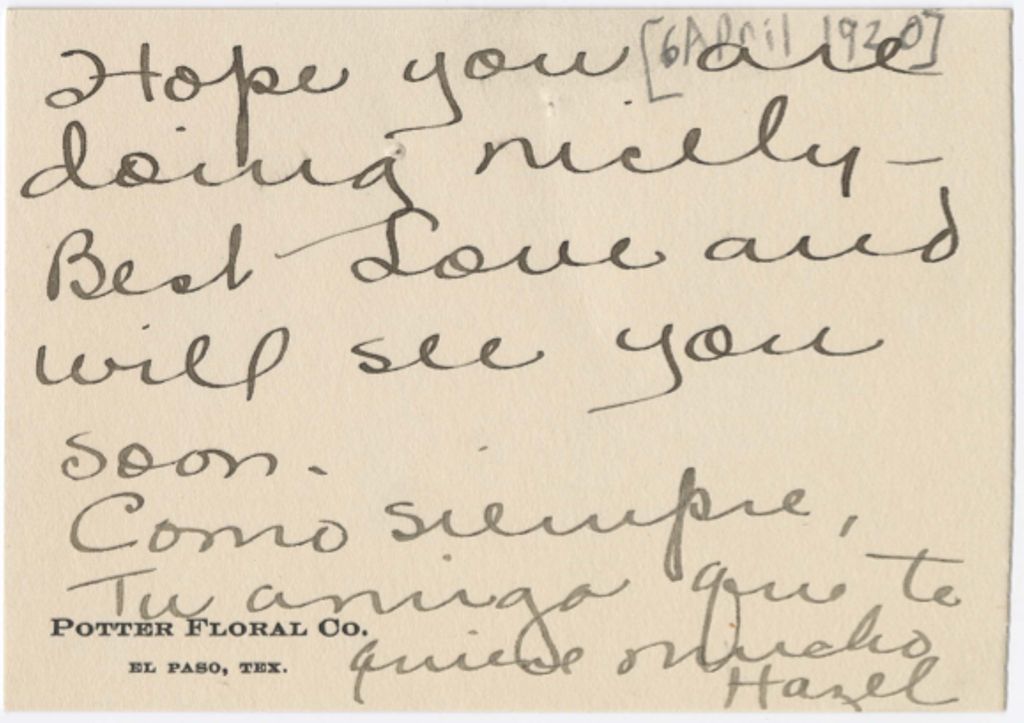 [6 April 1920]
Hope you are
doing nicely –
Best Love and
will see you
soon.
Como siempre,
Tu amiga que te
quiere mucho
Hazel
POTTER FLORAL CO.
EL PASO, TEX.